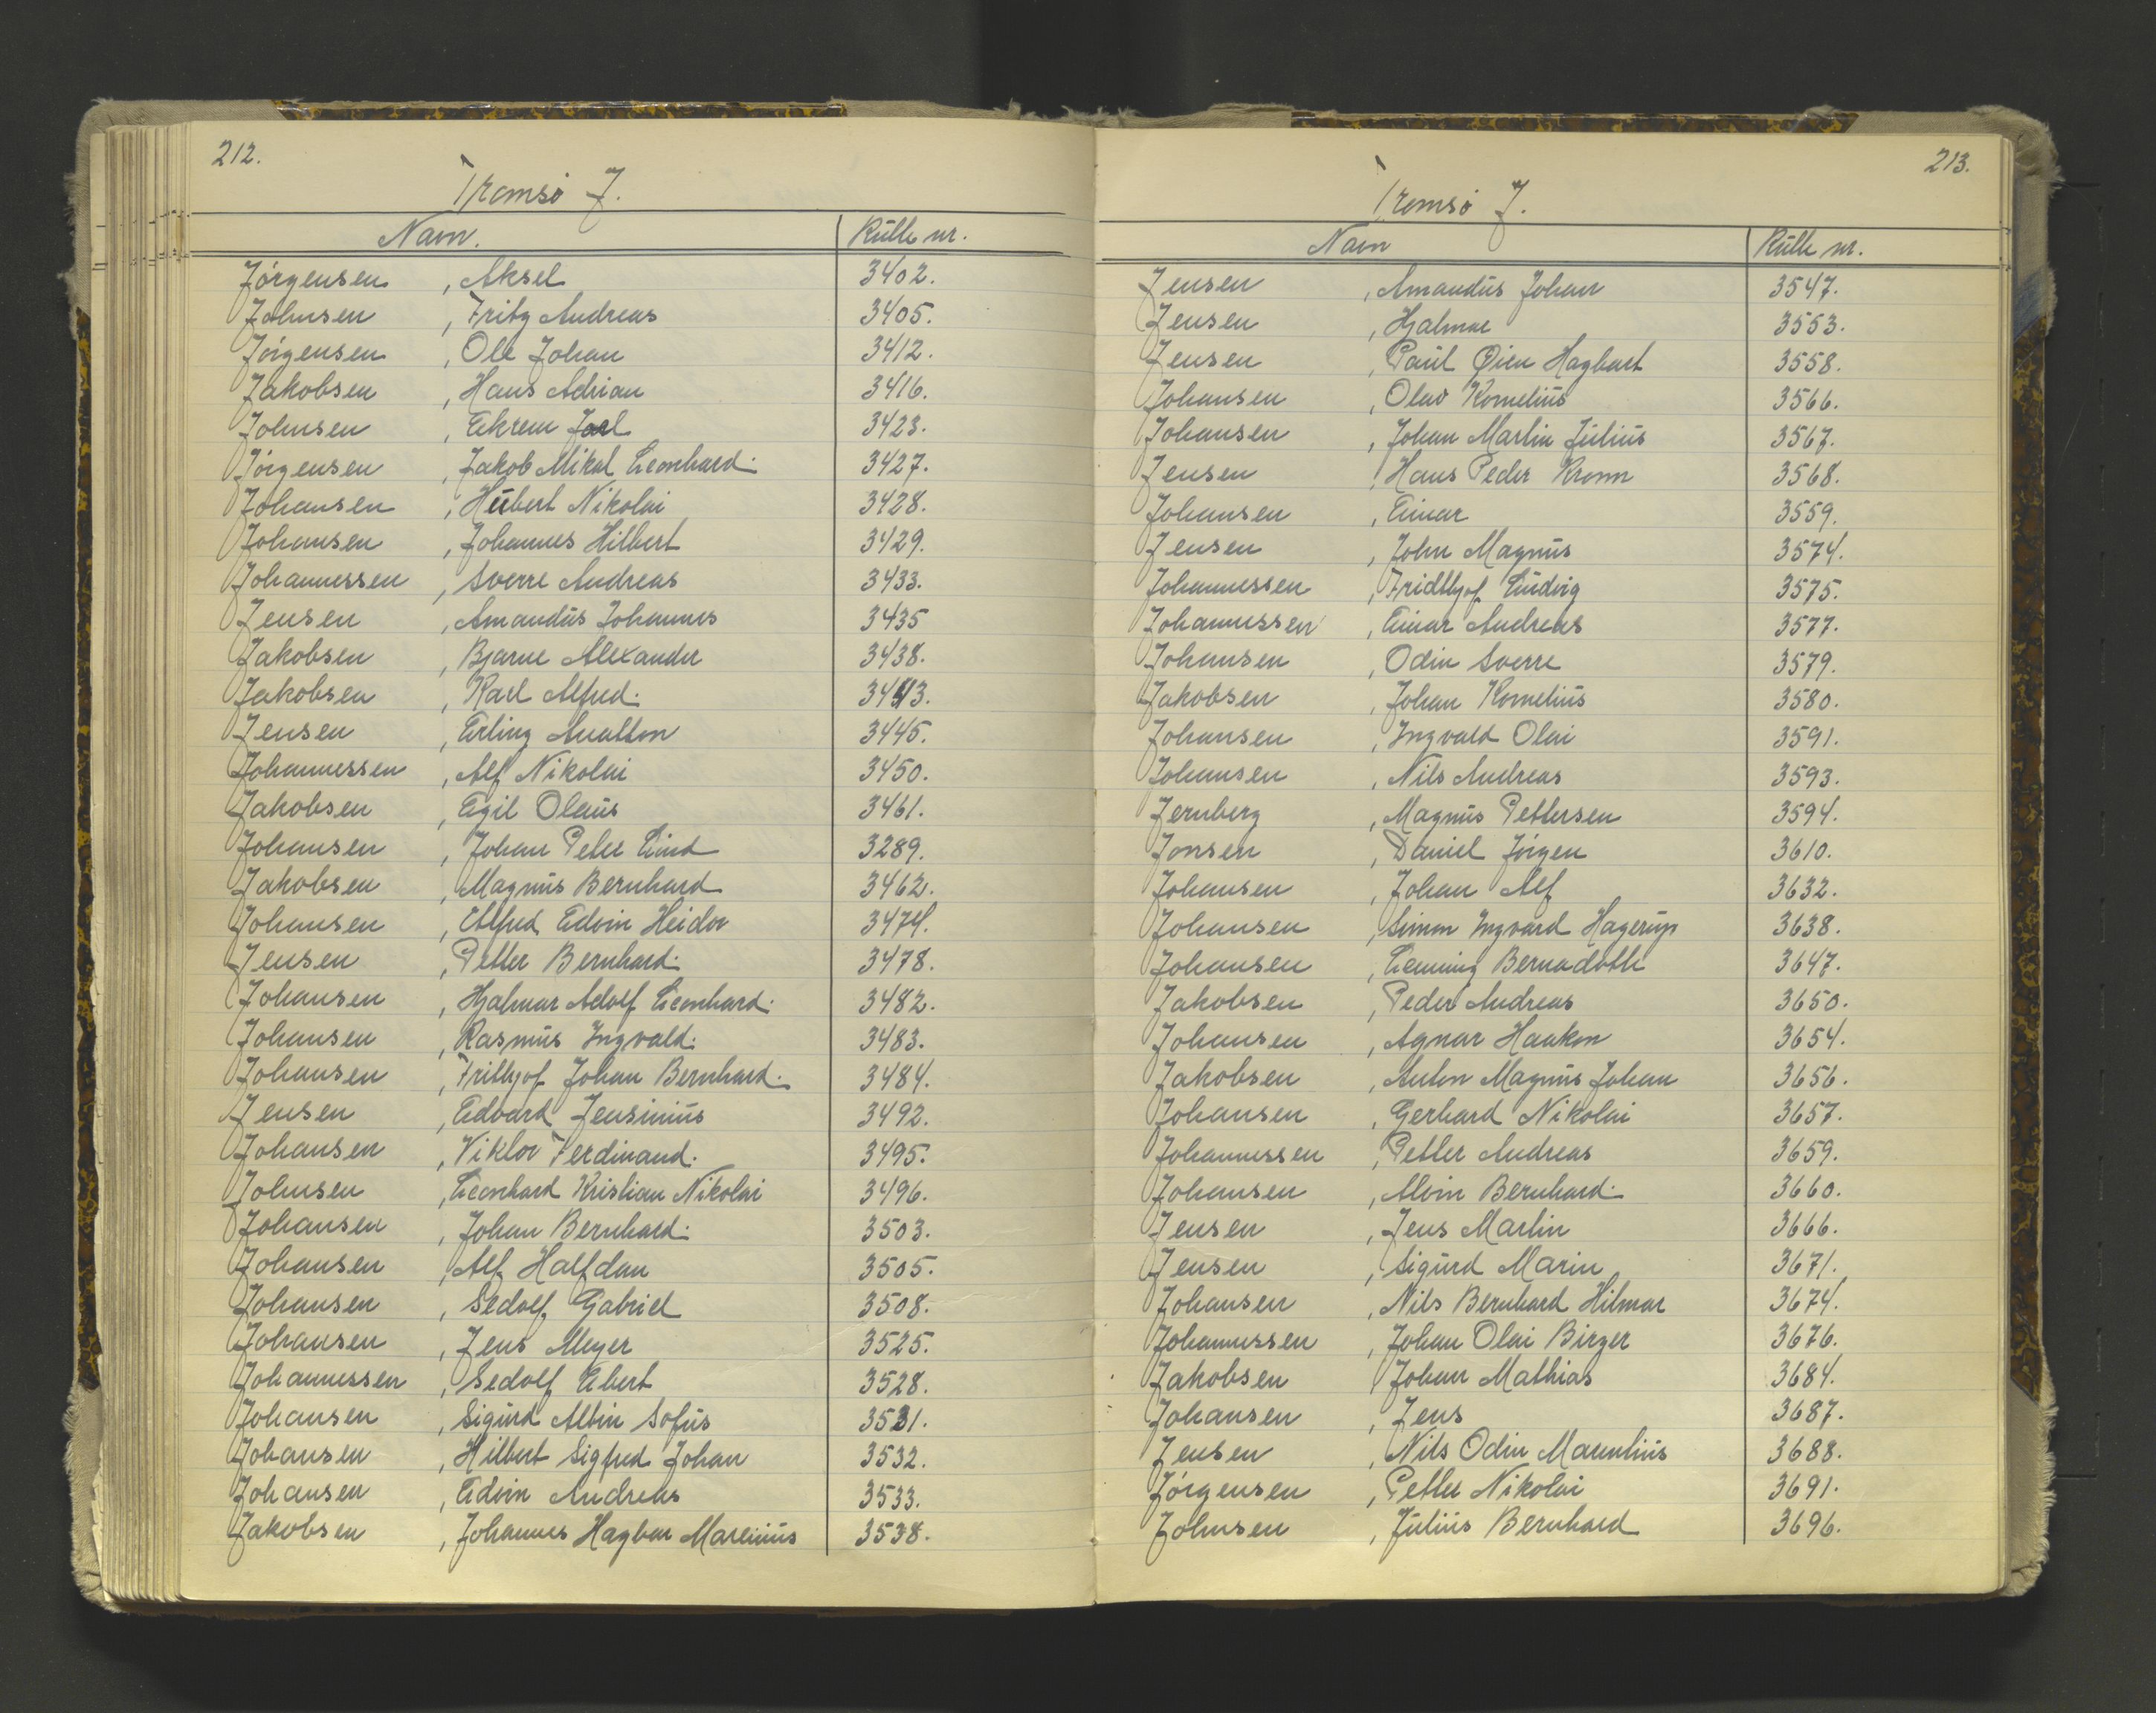 212.
Tromsø J.
Navn. Rulle nr.
Jörgensen, Aksel 3402.
Johnsen, Fritz Andreas 3405.
Jörgensen, Ole Johan 3412.
Jakobsen, Hans Adrian 3416.
Johnsen, Ekrem Joel 3423.
Jörgensen, Jakob Mikal Leonhard. 3427.
Johansen, Hübert Nikolai 3428.
Johansen, Johannes Hilbert 3429.
Johannessen, Sverre Andreas 3433.
Jensen, Amandüs Johannes 3435
Jakobsen, Bjarne Alexander 3438.
Jakobsen, Karl Alfred. 3443.
Jensen, Erling Anatton 3445.
Johannessen, Alf Nikolai 3450.
Jakobsen, Egil Olaüs 3461.
Johansen, Johan Peter Lind 3289.
Jakobsen, Magnüs Bernhard 3462.
Johansen, Alfred Edvin Heidar 3474.
Jensen, Petter Bernhard. 3478.
Johansen, Hjalmar Adolf Leonhard. 3482.
Johansen, Rasmüs Ingvald. 3483.
Johansen, Frithjof Johan Bernhard. 3484.
Jensen, Edvard Jensiniüs 3492.
Johansen, Viktor Ferdinand. 3495.
Johnsen, Leonhard Kristian Nikolai 3496.
Johansen, Johan Bernhard. 3503.
Johansen, Alf Halfdan 3505.
Johansen, Sedolf Gabriel 3508.
Johansen, Jens Meyer 3525.
Johannessen, Sedolf Ebert 3528.
Johansen, Sigürd Albin Sofüs 3531.
Johansen, Hilbert Sigfred Johan 3532.
Johansen, Edvin Andreas 3533.
Jakobsen, Johannes Hagbar Mareniüs 3538.
213.
Tromsø J.
Navn Rulle nr.
Jensen, Amandüs Johan 3547.
Jensen, Hjalmar 3553.
Jensen, Paül Øien Hagbart 3558.
Johansen, Olav Korneliüs 3566.
Johansen, Johan Martin Jüliüs 3567.
Jensen, Hans Peder Kronn 3568.
Johansen, Einar 3559.
Jensen, John Magnüs 3574.
Johannessen, Fridthjof Lüdvig 3575.
Johannessen, Einar Andreas 3577.
Johansen, Odin Sverre 3579.
Jakobsen, Johan Korneliüs 3580.
Johansen, Ingvald Olai 3591.
Johansen, Nils Andreas 3593.
Jernberg, Magnüs Pettersen 3594.
Jonsen, Daniel Jörgen 3610.
Johansen, Johan Alf 3632.
Johansen, Simon Ingvard Hagerüp 3638.
Johansen, Henning Bernadotte 3647.
Jakobsen, Peder Andreas 3650.
Johansen, Agnar Haakon 3654.
Jakobsen, Anton Magnüs Johan 3656.
Johansen, Gerhard Nikolai 3657.
Johannessen, Petter Andreas 3659.
Johansen, Alvin Bernhard. 3660.
Jensen, Jens Martin 3666.
Jensen, Sigürd Marin 3671.
Johansen, Nils Bernhard Hilmar 3674.
Johannessen, Johan Olai Birger 3676.
Jakobsen, Johan Mathias 3684.
Johansen, Jens 3687.
Jensen, Nils Odin 3688.
Jörgensen, Petter Nikolai 3691.
Johnsen, Jüliüs Bernhard 3696.